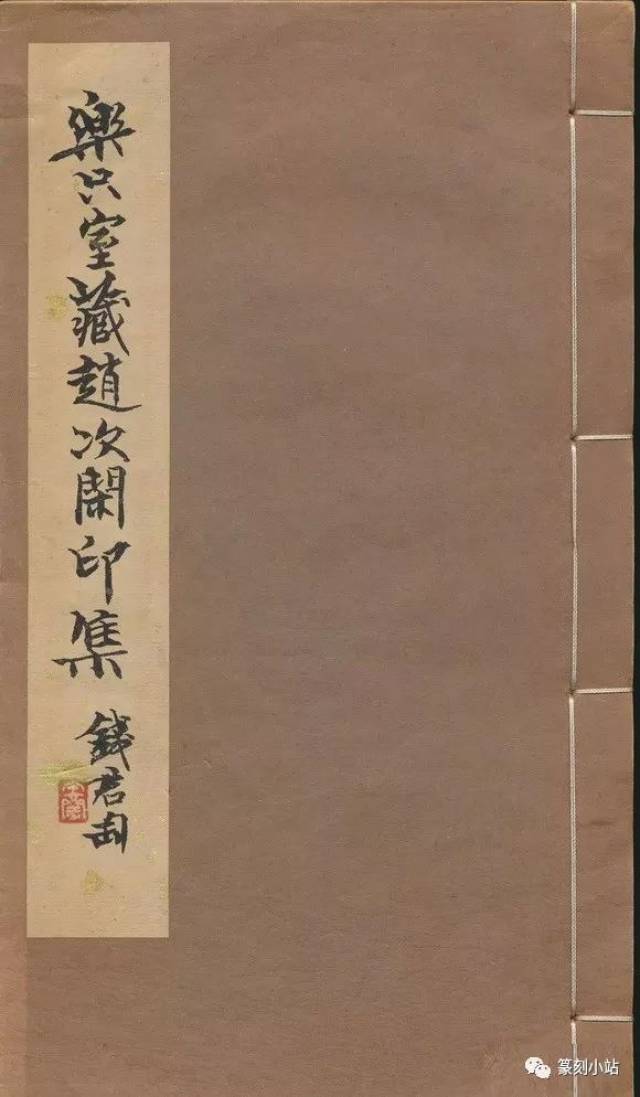 樂只室藏趙次閑印集
錢君匋
篆刻小站